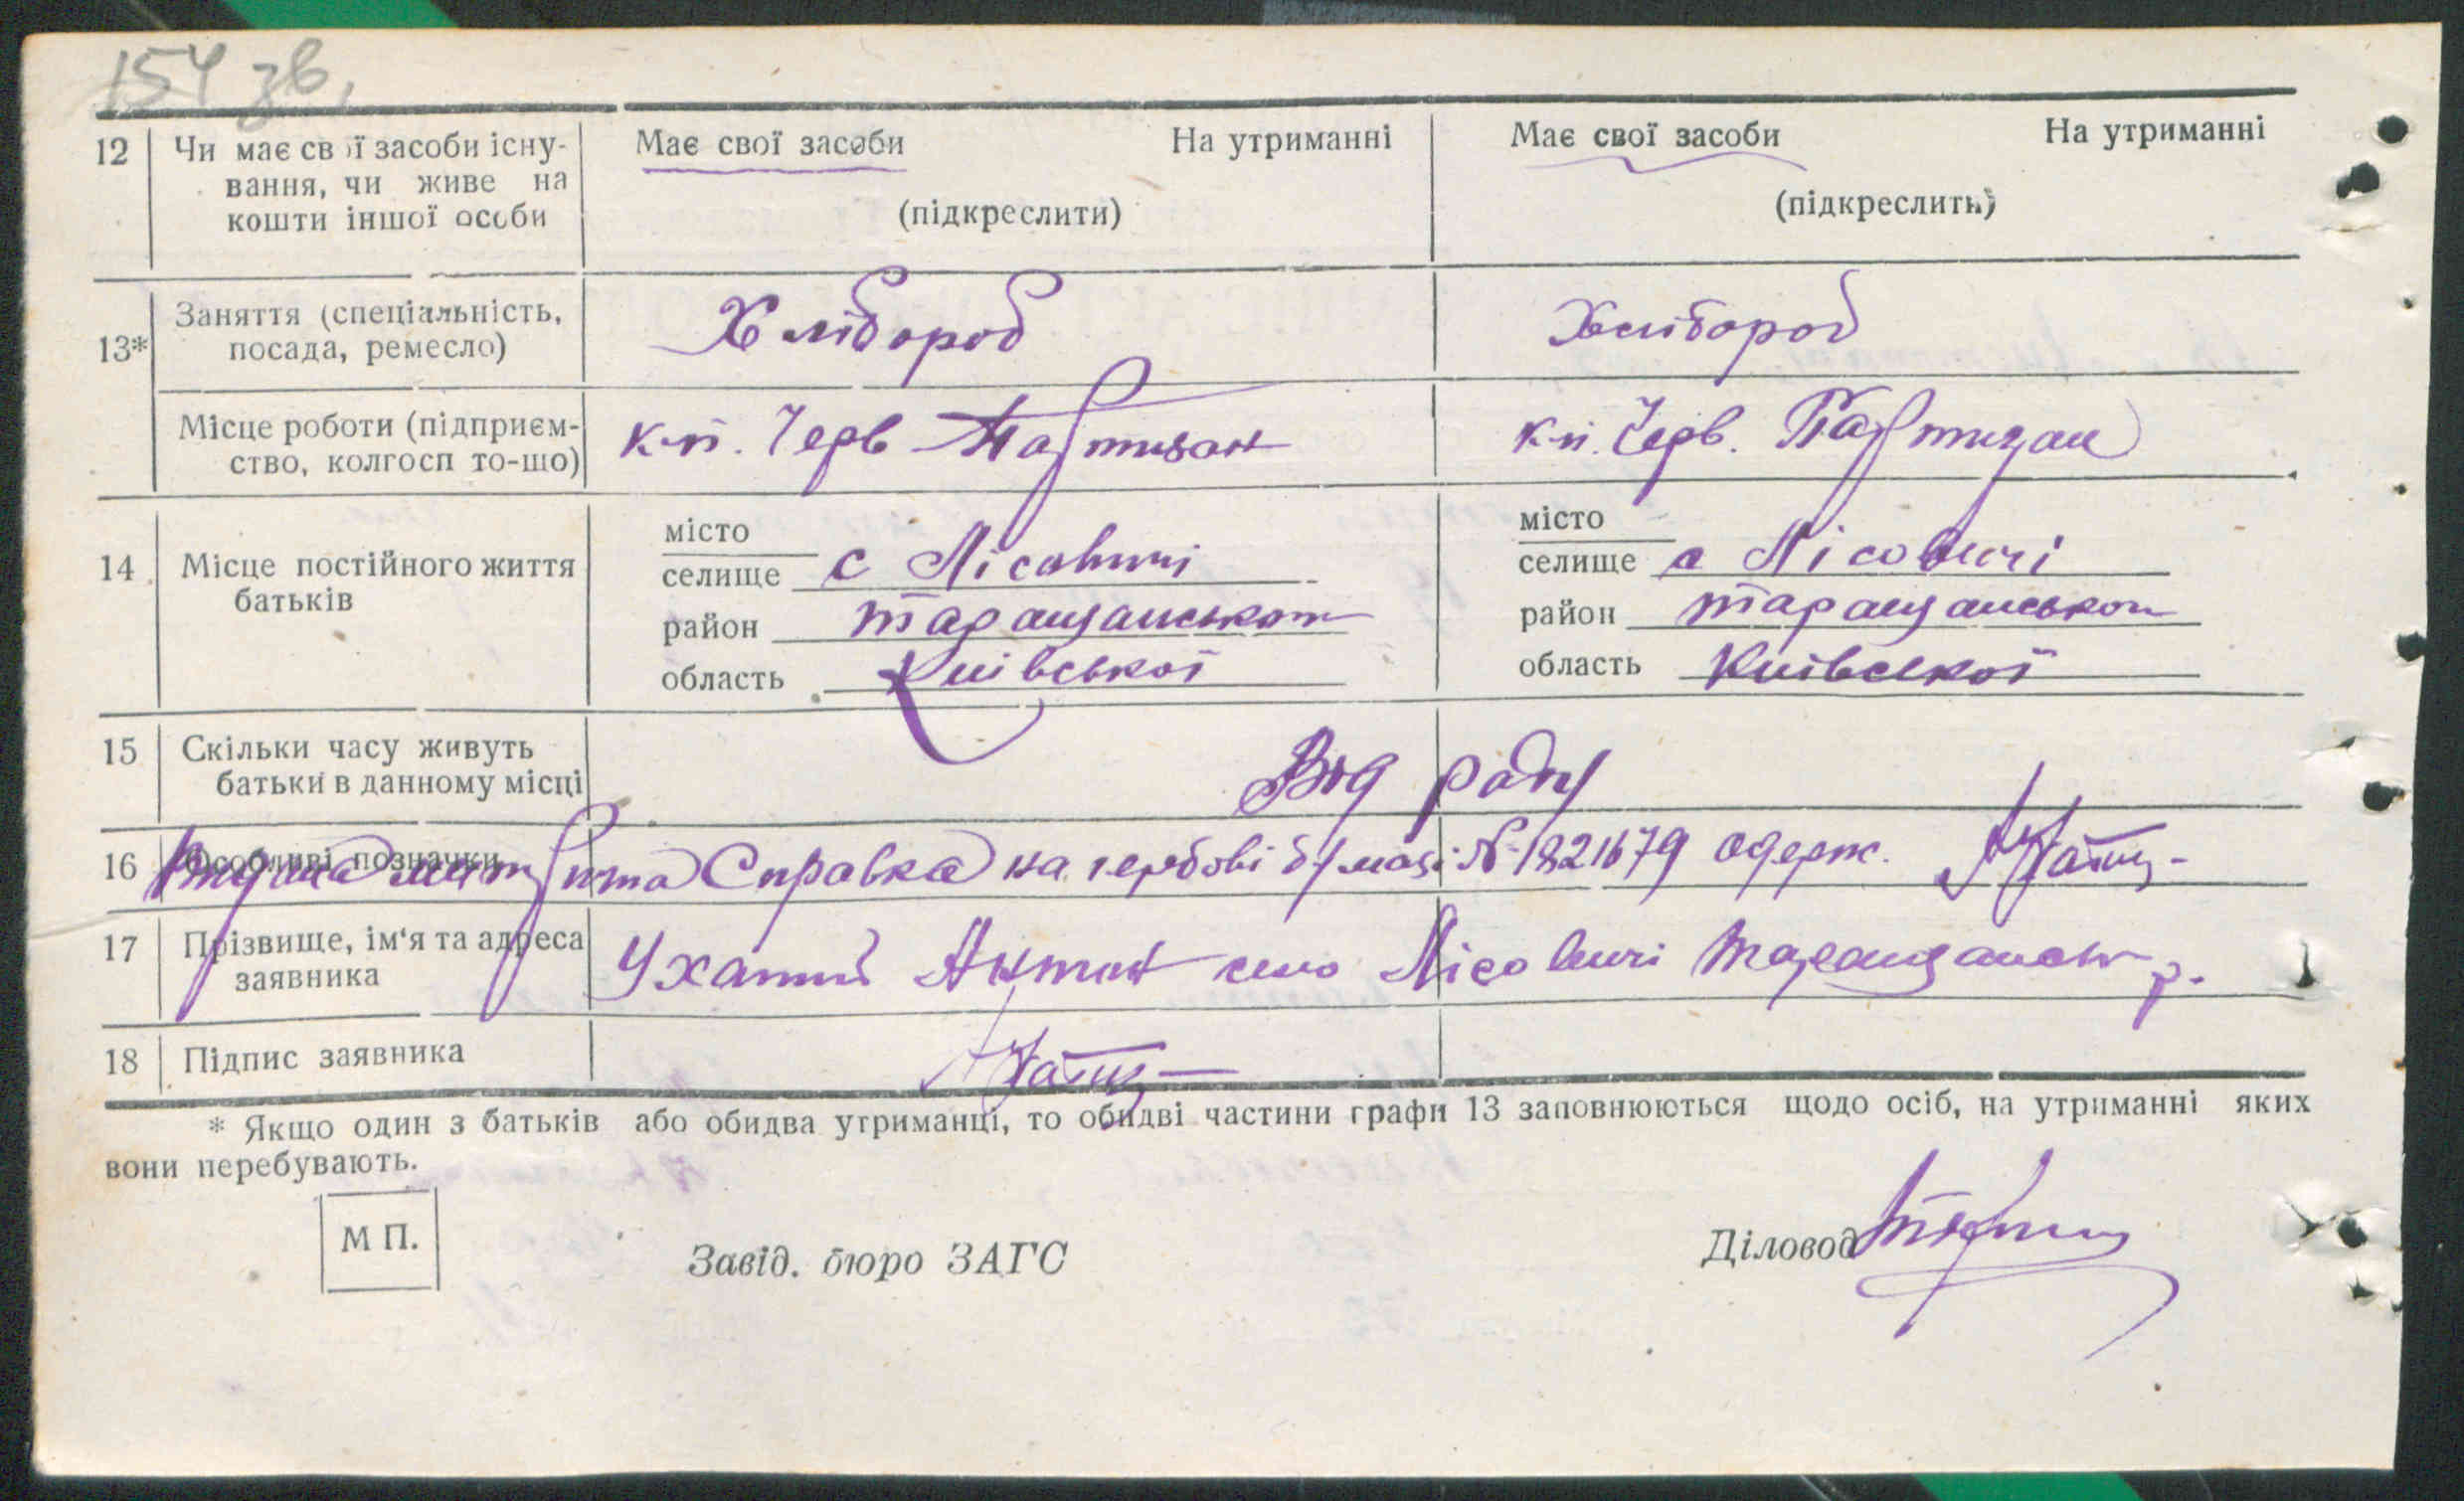 154 зв.
12 Чи має свої засоби існу- Має свої засоби На утриманні Має свої засоби На утриманні
вання, чи живе на
кошти іншої особи (підкреслити) (підкреслить)
13* Заняття (спеціальність, Хлібороб Хлібороб
посада, ремесло)
Місце роботи (підприєм- к-п. Черв Партизан к-п. Черв. Партизан
ство, колгосп то-що)
14 Місце постійного життя місто місто
батьків селище с Лісовичі селище с Лісовичі
район Таращанськом район Таращанськом
область Київської область Київської
15 Скільки часу живуть Від роду
батьки в данному місці
16 Особливі позначки Справка на гербові бумазі № 1821679 одерж.
17 Прізвище, ім'я та адреса Ухатий Антон село Лісовичі Таращанськ р.
заявника
18 Підпис заявника
* Якщо один з батьків або обидва утриманці, то обидві частини графи 13 заповнюються щодо осіб, на утриманні яких
вони перебувають.
М П.
Завід. бюро ЗАГС Діловод